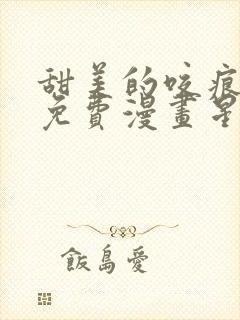 甜美的咬痕
免費漫畫星
飯島愛